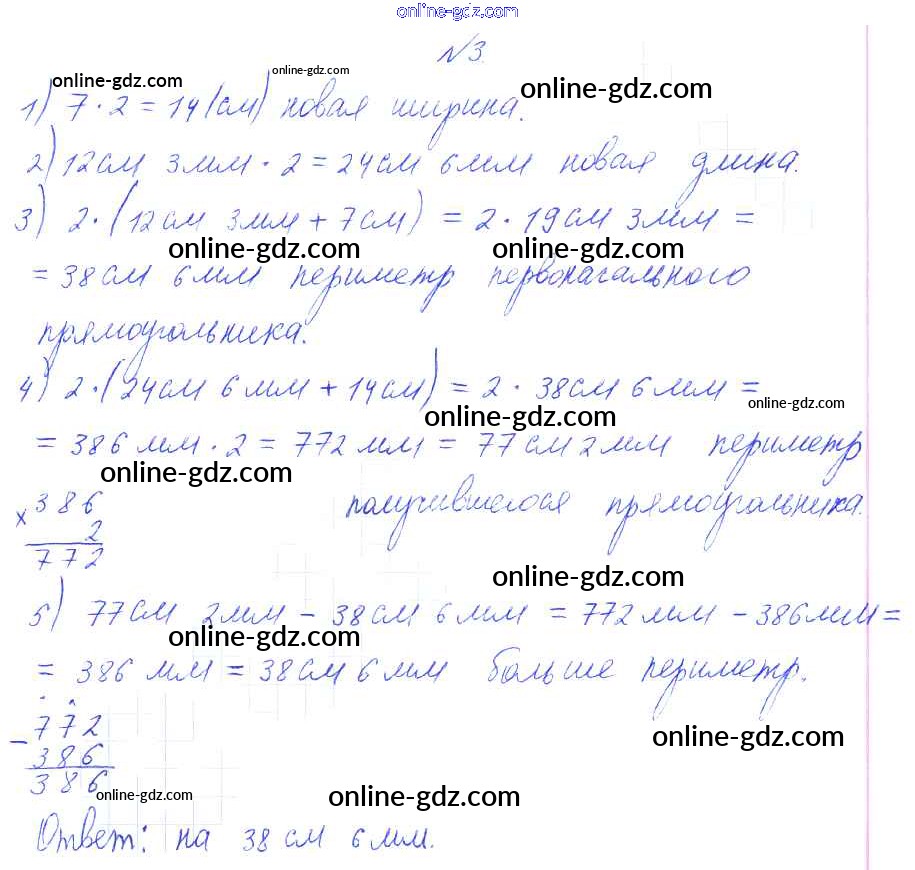 online-gdz.com
№3.
online-gdz.com online-gdz.com online-gdz.com
1) 7 · 2 = 14 (см) новая ширина.
2) 12см 3мм · 2 = 24см 6мм новая длина.
3) 2 · (12см 3мм + 7см) = 2 · 19см 3мм =
online-gdz.com online-gdz.com
= 38см 6мм периметр первоначального
прямоугольника.
4) 2 · (24см 6мм + 14см) = 2 · 38см 6мм =
online-gdz.com online-gdz.com
= 386мм · 2 = 772мм = 77см 2мм периметр
online-gdz.com online-gdz.com
× 386 получившегося прямоугольника.
2
772
online-gdz.com
5) 77см 2мм - 38см 6мм = 772мм - 386мм =
online-gdz.com
= 386мм = 38см 6мм больше периметр.
- 772
online-gdz.com
386
386
online-gdz.com online-gdz.com
Ответ: на 38см 6мм.